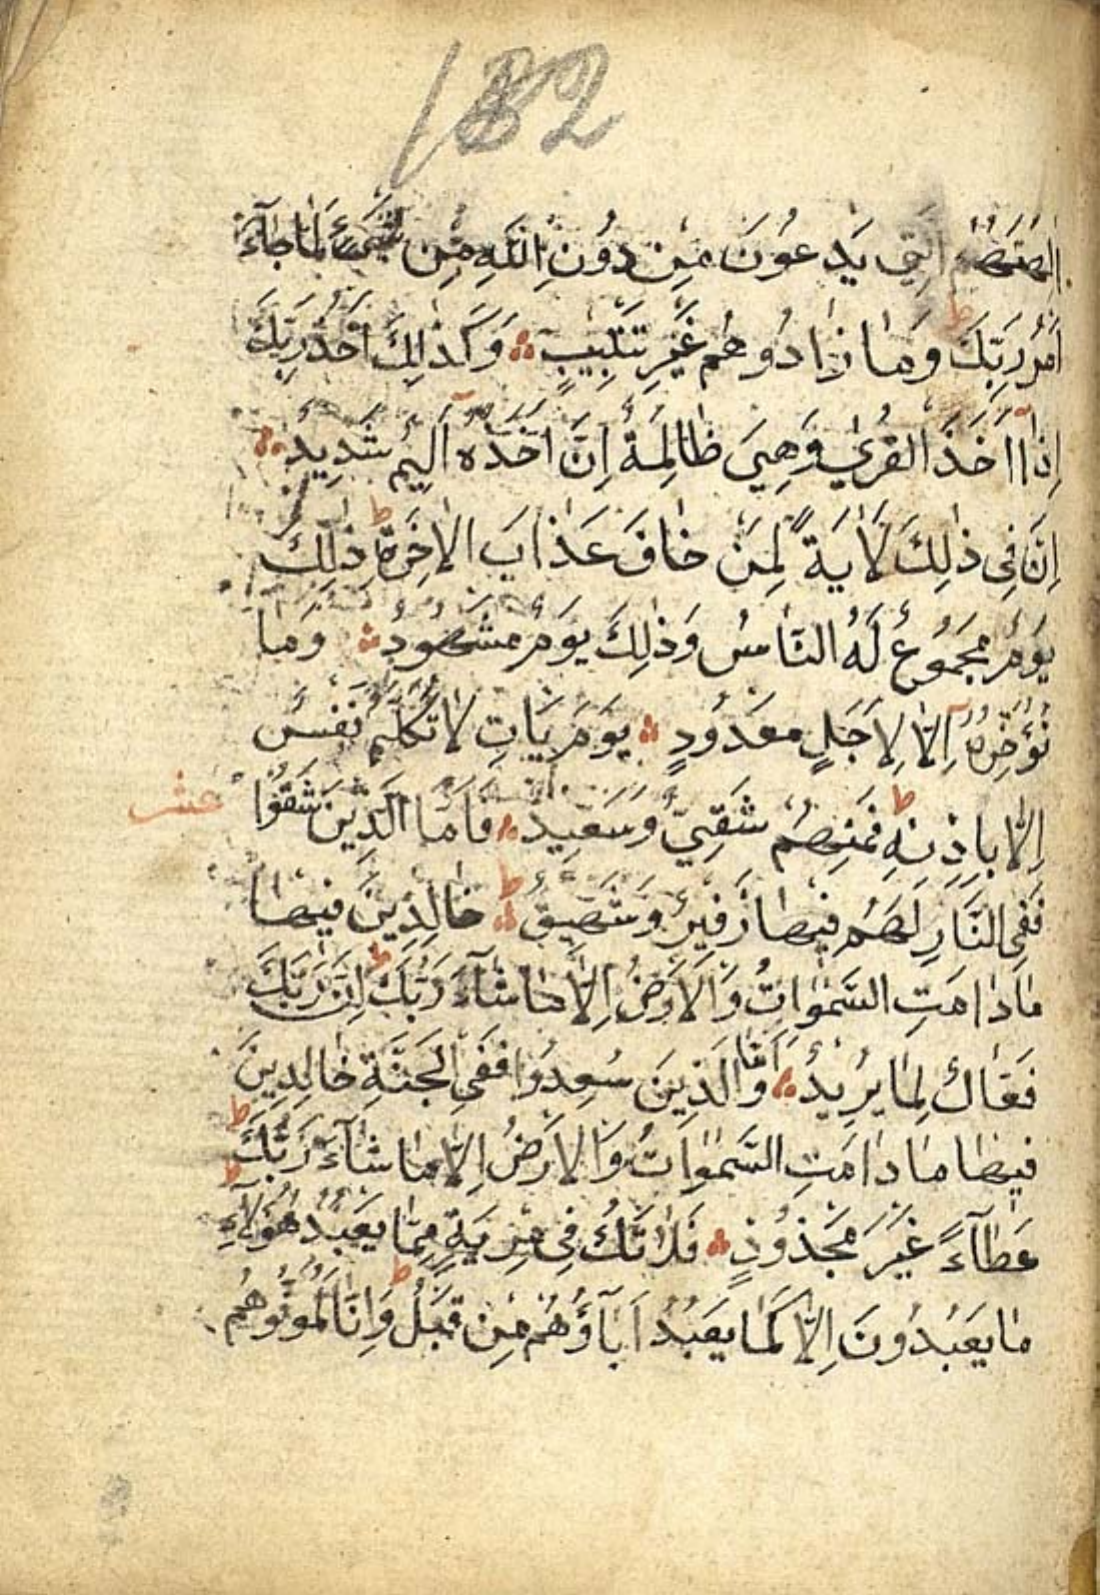 182
اٰلِهَتُهُمُ الَّتِي يَدْعُونَ مِنْ دُونِ اللّٰهِ مِنْ شَيْءٍ لَمَّا جَآءَ
اَمْرُ رَبِّكَ ط وَمَا زَادُوهُمْ غَيْرَ تَتْبِيبٍ ؞ وَكَذٰلِكَ اَخْذُ رَبِّكَ
اِذَآ اَخَذَ الْقُرٰى وَهِيَ ظَالِمَةٌ اِنَّ اَخْذَهُٓ اَلِيمٌ شَدِيدٌ ؞
اِنَّ فِي ذٰلِكَ لَاٰيَةً لِمَنْ خَافَ عَذَابَ الْاٰخِرَةِ ط ذٰلِكَ
يَوْمٌ مَجْمُوعٌ لَهُ النَّاسُ وَذٰلِكَ يَوْمٌ مَشْهُودٌ ؞ وَمَا
نُؤَخِّرُهُٓ اِلَّا لِاَجَلٍ مَعْدُودٍ ؞ يَوْمَ يَاْتِ لَا تَكَلَّمُ نَفْسٌ
اِلَّا بِاِذْنِهِ ط فَمِنْهُمْ شَقِيٌّ وَسَعِيدٌ ؞ فَاَمَّا الَّذِينَ شَقُوا
عشر
فَفِي النَّارِ لَهُمْ فِيهَا زَفِيرٌ وَشَهِيقٌ ط ؞ خَالِدِينَ فِيهَا
مَا دَامَتِ السَّمٰوَاتُ وَالْاَرْضُ اِلَّا مَا شَآءَ رَبُّكَ ط اِنَّ رَبَّكَ
فَعَّالٌ لِمَا يُرِيدُ ؞ وَاَمَّا الَّذِينَ سُعِدُوا فَفِي الْجَنَّةِ خَالِدِينَ
فِيهَا مَا دَامَتِ السَّمٰوَاتُ وَالْاَرْضُ اِلَّا مَا شَآءَ رَبُّكَ ط
عَطَآءً غَيْرَ مَجْذُوذٍ ؞ فَلَا تَكُ فِي مِرْيَةٍ مِمَّا يَعْبُدُ هٰٓؤُلَآءِ ط
مَا يَعْبُدُونَ اِلَّا كَمَا يَعْبُدُ اٰبَآؤُهُمْ مِنْ قَبْلُ ط وَاِنَّا لَمُوَفُّوهُمْ